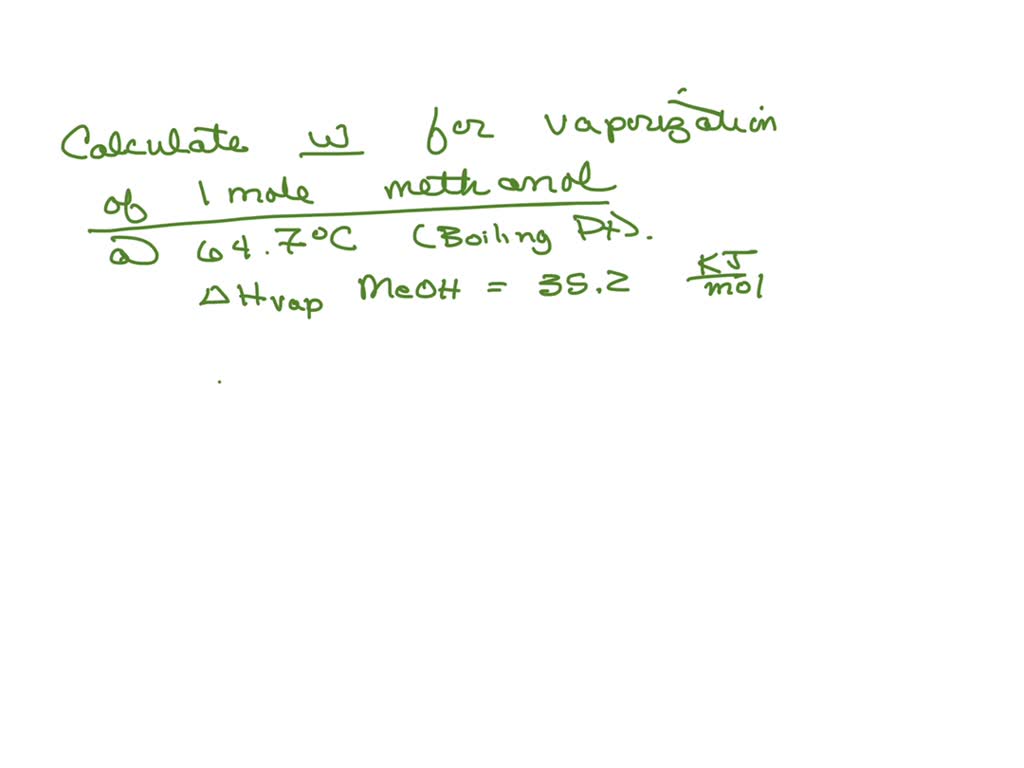 Calculate w for vaporization
of 1 mole methanol
@ 64.7°C (Boiling Pt).
ΔHvap MeOH = 35.2 KJ/mol